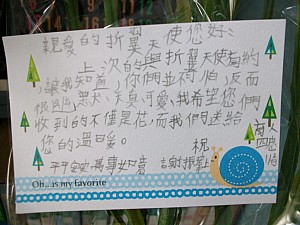 親愛的折翼天使您好:
上次的與折翼天使有約
,讓我知道,你們並不可怕,反而
很善良、天真可愛,我希望您們
收到的不僅是花,而我們送給
您的溫暖。 祝
平安 萬事如意
Oh...is my favorite